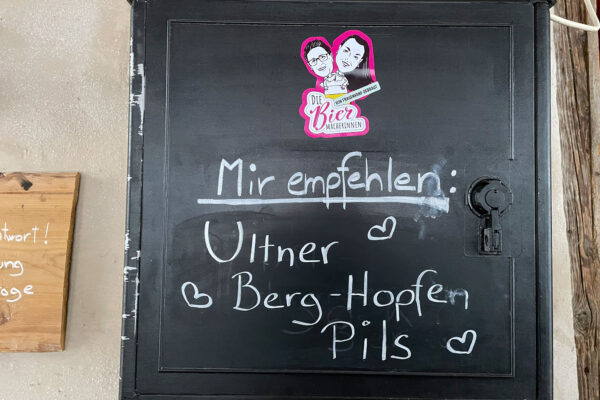 DIE
Bier
MACHERINNEN
VON FRAUENHAND GEBRAUT
Mir empfehlen:
Ultner
Berg-Hopfen
Pils
twort!
ung
age